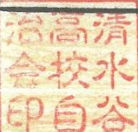 清水谷
高校自
治会印